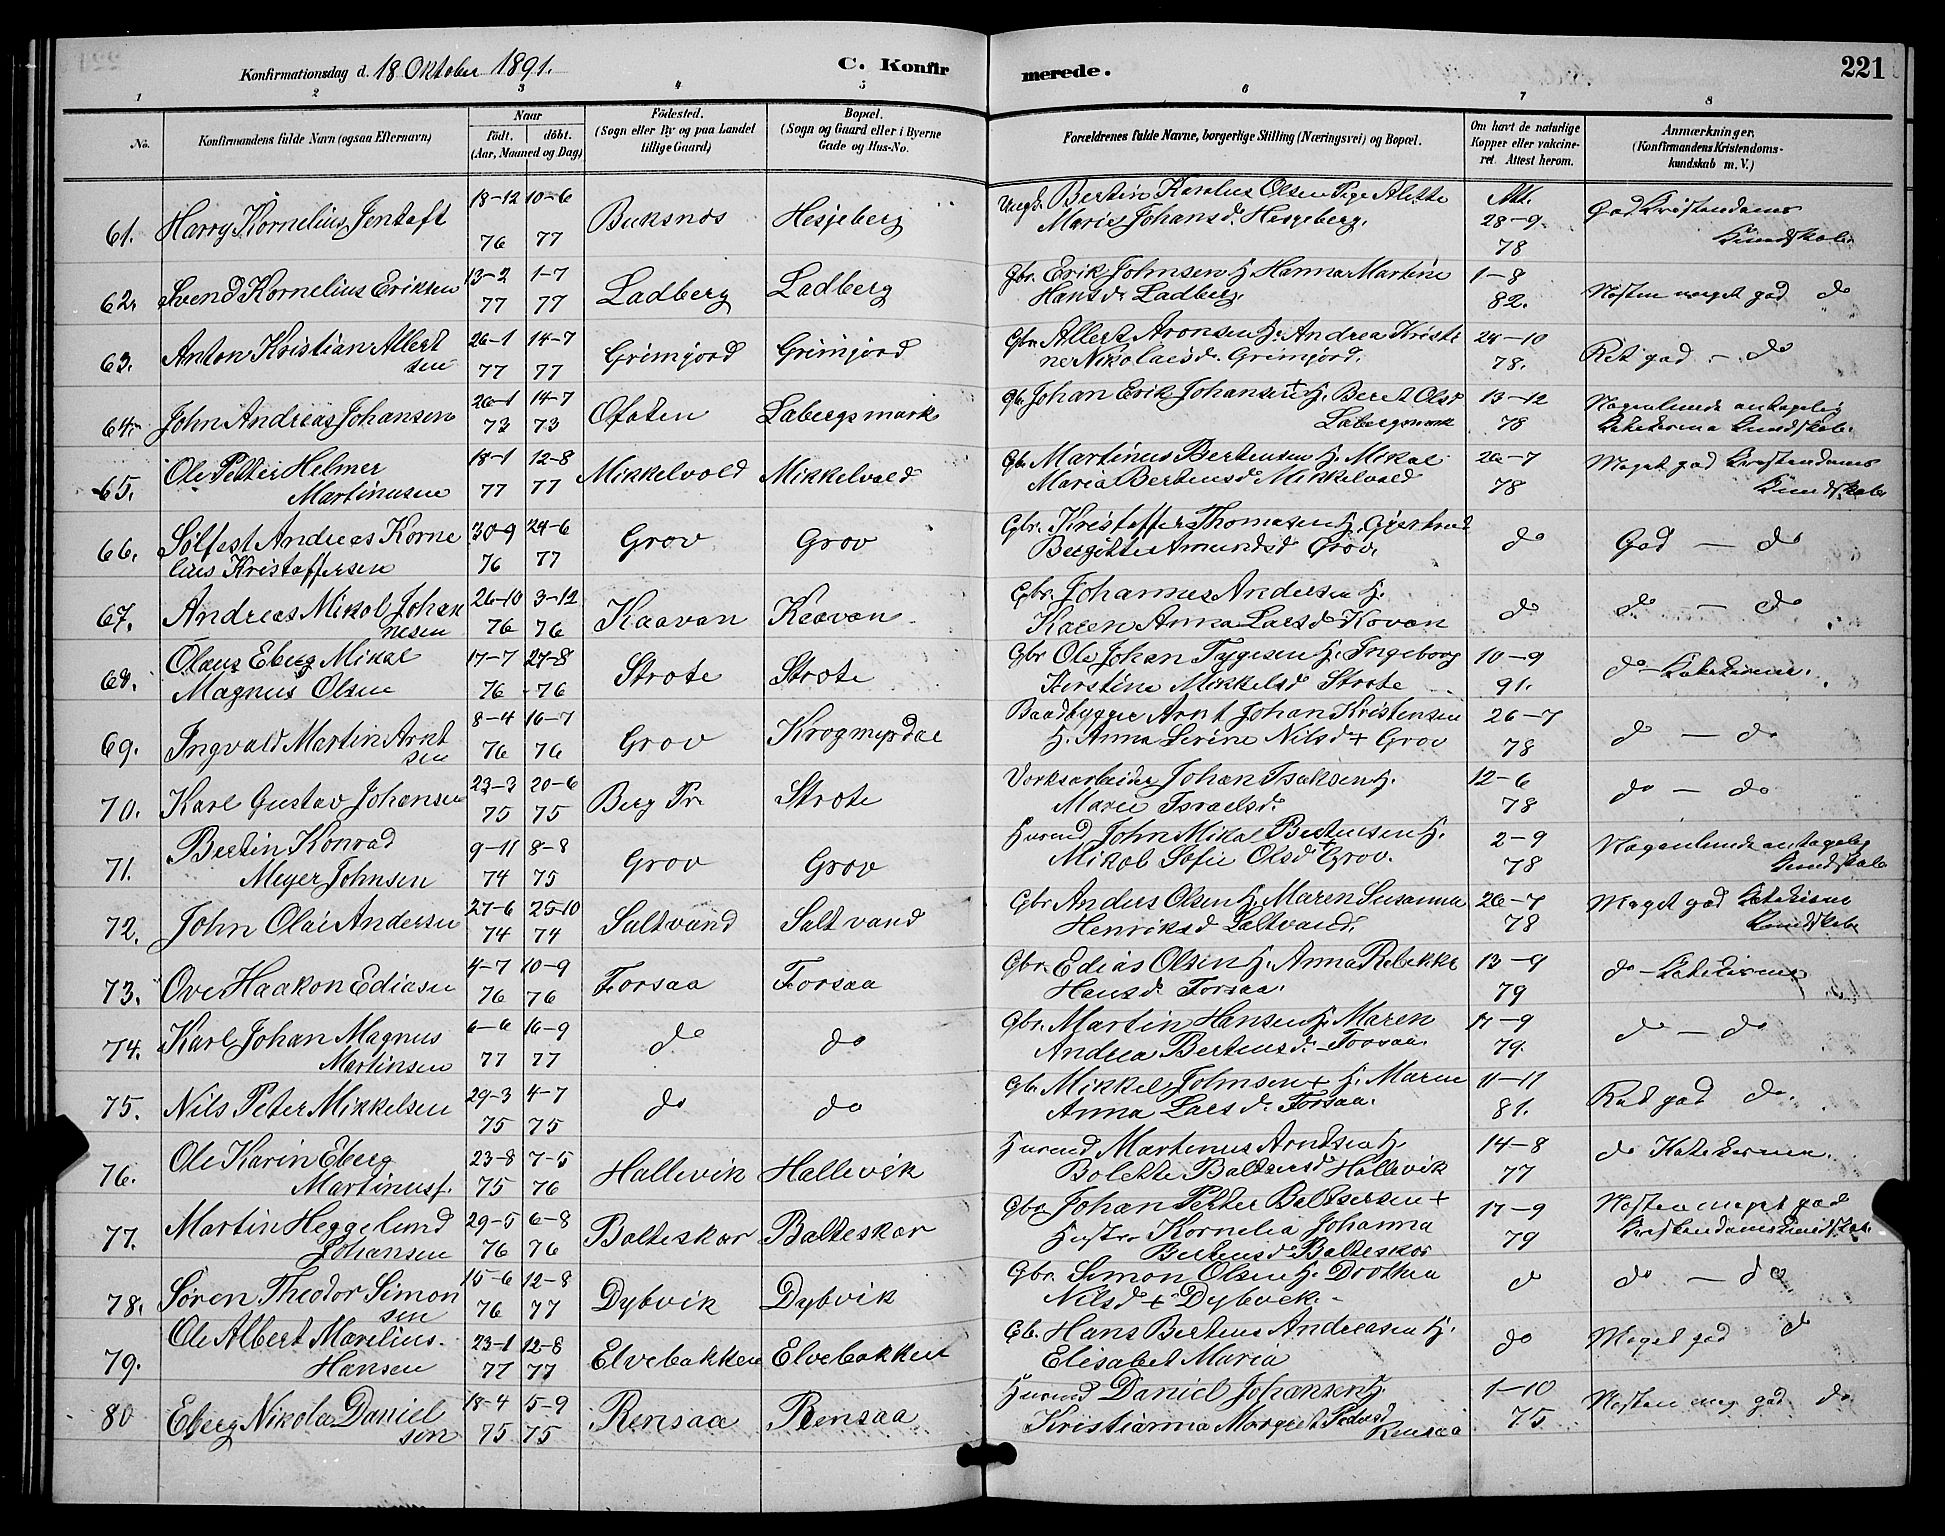 Konfirmationsdag d. 18 Oktober 1891.
C. Konfirmerede.
221
1 2 3 4 5 6 7 8
No.
Konfirmandens fulde Navn (ogsaa Efternavn)
Naar
födt. döbt.
(Aar, Maaned og Dag)
Födested.
(Sogn eller By og paa Landet
tillige Gaard)
Bopæl.
(Sogn og Gaard eller i Byerne
Gade og Hus-No.
Forældrenes fulde Navne, borgerlige Stilling (Næringsvei) og Bopæl.
Om havt de naturlige
Kopper eller vakcine-
ret. Attest herom.
Anmærkninger,
(Konfirmandens Kristendoms-
kundskab m. V.)
61. Harry Kornelius Jentoft 18-12 76 10-6 77 Buksnes Hesjeberg
Ungk. Bertin Karolus Olsen Pige Alette
Marie Johansd. Hesjeberg. Att. 28-9 78
God Kristendoms
Kundskab
62. Svend Kornelius Eriksen 13-2 77 1-7 77 Ladberg Ladberg
Gbr. Erik Johnsen H. Hanna Martine
Hansd. Ladberg. 1-8 82.
Næsten meget god do
63. Anton Kristian Albert
sen 26-1 77 14-7 77 Grimjord Grimjord
Gbr. Albert Aronsen H. Andrea Kristi
ne Nikolaisd. Grimjord. 24-10 78.
Ret god - do
64. John Andreas Johansen 26-1 73 14-7 73 Ofoten Labergsmark
Gb. Johan Erik Johansen + H. Beret Olsd
Labergsmark 13-12 78
Nogenlunde antagelig
Katekisme Kundskab.
65. Ole Petter Helmer
Martinusen 18-1 77 12-8 77 Mikkelvold Mikkelvold
Gbr. Martinus Bertensen H. Mikal
Maria Bertensd. Mikkelvold 26-7 78
Meget god Kristendoms
Kundskab
66. Sølfest Andreas Korne
lius Kristoffersen 30-9 76 24-6 77 Grov Grov
Gbr. Kristoffer Thomasen H. Gjertrud
Bergitte Amundsd Grov. do
God - do
67. Andreas Mikal Johan
nesen 26-10 76 3-12 76 Kaavan Kaavan
Gbr. Johannes Andersen H.
Karen Anna Larsd Kovan do
do - do
68. Olaus Eberg Mikal
Magnus Olsen 17-7 76 27-8 76 Strøte Strøte
Gbr Ole Johan Tygesen H. Ingeborg
Kirstine Mikkelsd Strøte 10-9 91.
do - Katekisme.
69. Ingvald Martin Arnt
sen 8-4 76 16-7 76 Grov Krogmyrdal
Baadbygger Arnt Johan Kristensen
H. Anna Serine Nilsd + Grov 26-7 78
do - do
70. Karl Gustav Johansen 23-3 75 20-6 75 Berg Pr. Strøte
Verksarbeider Johan Isaksen H.
Marie Israelsd. 12-6 78
do - do
71. Bertin Konrad
Meyer Johnsen 9-11 74 8-8 75 Grov Grov
Husmd John Mikal Bertensen H.
Mikal Sofie Olsd + Grov. 2-9 78
Nogenlunde antagelig
Kundskab
72. John Olai Andersen 27-6 74 25-10 74 Saltvand Saltvand
Gbr Anders Olsen H. Maren Susanna
Henriksd Saltvand. 26-7 78
Meget god Katekisme
Kundskab
73. Ove Haakon Ediasen 4-7 76 10-9 76 Forsaa Forsaa
Gbr. Edias Olsen H. Anna Rebekka
Hansd. Forsaa. 13-9 79
do - Katekisme
74. Karl Johan Magnus
Martinsen 6-6 77 16-9 77 do do
Gbr. Martin Hansen H. Maren
Andrea Bertensd. Forsaa. 17-9 79.
do - do
75. Nils Peter Mikkelsen 29-3 75 4-7 75 do do
Gbr Mikkel Johnsen + H. Maren
Anna Larsd. Forsaa. 11-11 81.
Ret god do.
76. Ole Karin Eberg
Martinusf. 23-8 75 7-5 76 Hallevik Hallevik
Husmd Martinus Arndsen H.
Bolette Baltsersd Hallevik 14-8 77
do Katekisme.
77. Martin Heggelund
Johansen 29-5 76 6-8 76 Balteskar Balteskar
Gbr. Johan Petter Baltsersen +
Hustr. Kornelia Johanna
Bertensd. Balteskar 17-9 79
Næsten meget god
Kristendomskundskab
78. Sören Theodor Simon
sen 15-6 76 12-8 77 Dybvik Dybvik
Gbr. Simon Olsen H. Dorthea
Nilsd + Dybvik. do
do - do
79. Ole Albert Marelius
Hansen 23-1 77 12-8 77 Elvebakken Elvebakken
Gb. Hans Berteus Andreasen H.
Elisabet Maria do
Meget god do
80 Eberg Nikolai Daniel
sen 18-4 75 5-9 75 Rensaa Rensaa
Husmd Daniel Johansen H.
Kristianna Margret Pedersd
Rensaa 1-10 75.
Næsten meg god do